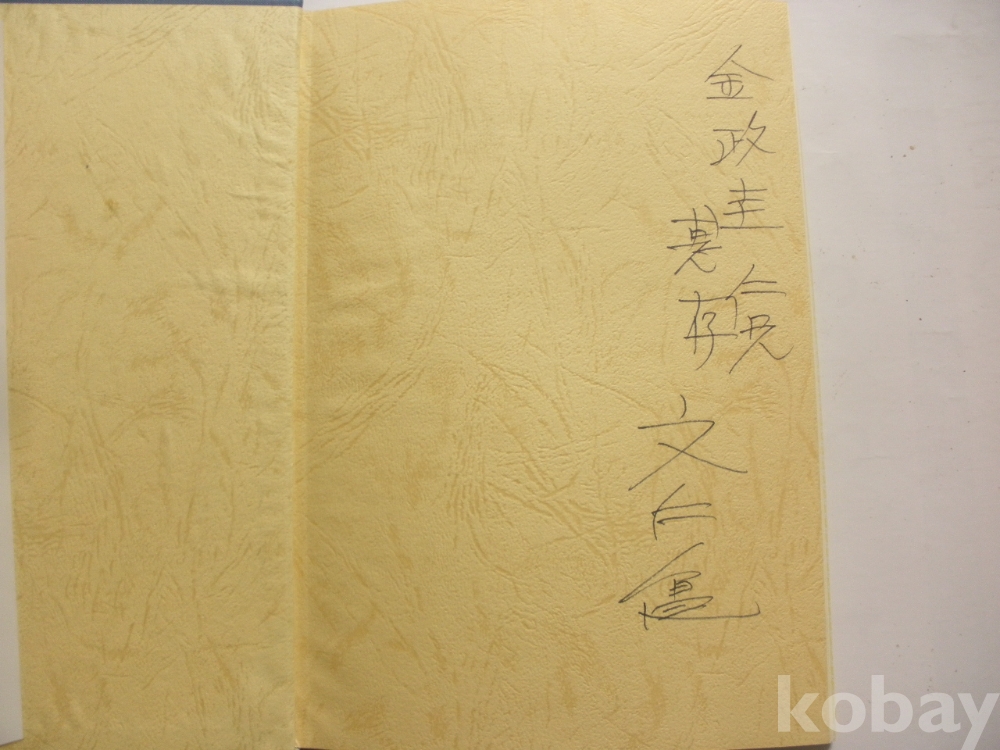 金政圭仁兄
惠存
文仁
kobay